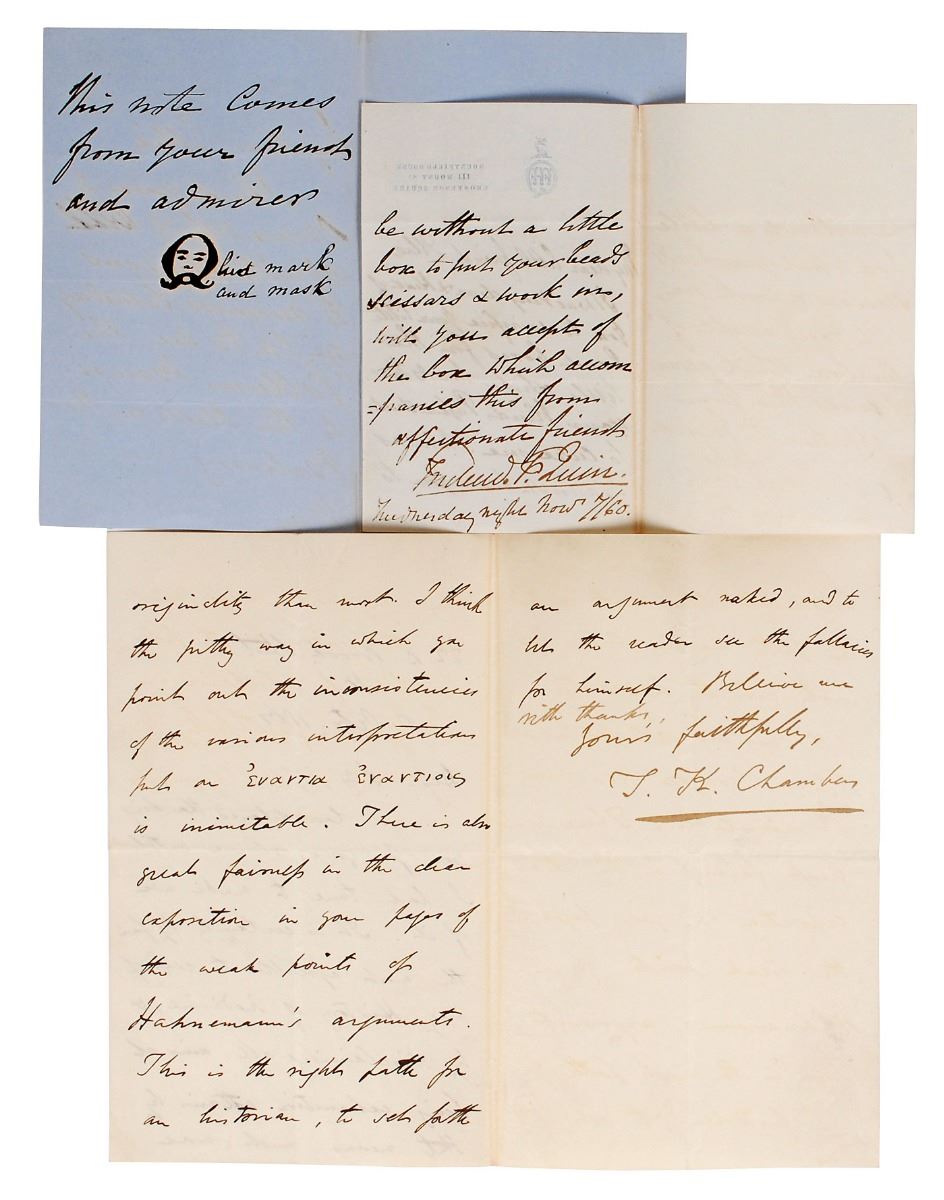 This note comes
from your friend
and admirer
his mark
and mask
be without a little
box to put your beads
scissars & work in,
will you accept of
the box which accom
=panies this from
affectionate friend
Frederic F. Quin.
night Novr 7/60.
originality than most. I think
the pithy way in which you
point out the inconsistencies
of the various interpretations
put on ἐναντία ἐναντίοις
is inimitable. There is also
great fairness in the clear
exposition in your pages of
the weak points of
Hahnemann's arguments.
This is the right path for
an historian, to set forth
an argument naked, and to
let the reader see the fallacies
for himself. Believe me
with thanks,
Yours faithfully,
T. K. Chambers